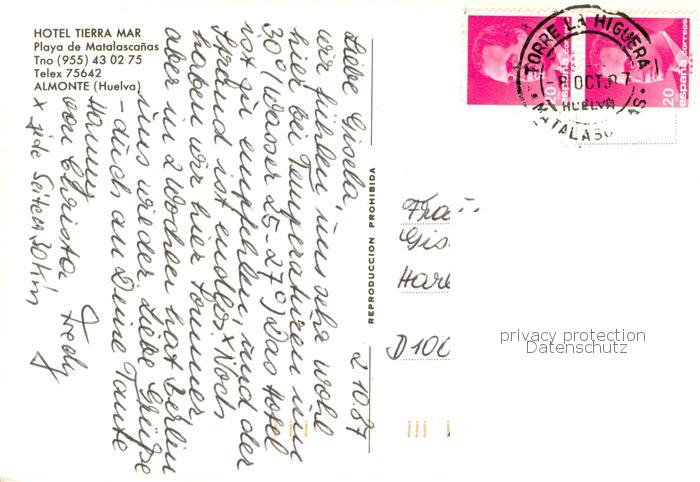 HOTEL TIERRA MAR
Playa de Matalascañas
Tno (955) 43 02 75
Telex 75642
ALMONTE (Huelva)
2.10.87
Liebe Gisela,
wir fühlen uns sehr wohl
hier bei Temperaturen um
30° (Wasser 25-27°) Das Hotel
ist zu empfehlen, und der
Strand ist endlos x Noch
haben wir hier Sommer
aber in 2 Wochen hat Berlin
uns wieder. Liebe Grüße
- auch an Deine Tante
Hanny
von Christa
Fredy
x jede Seite 30 km
REPRODUCCION PROHIBIDA
TORRE LA HIGUERA
-8 OCT 87
HUELVA
MATALASC AS
20
españa correos
20
españa correos
Frau
Gis
Hare
D 100
privacy protection
Datenschutz